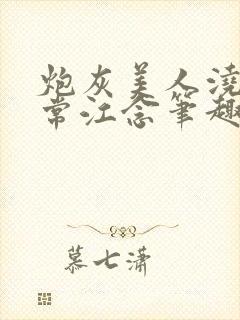 炮灰美人浇
常江念笔趣
慕七潇